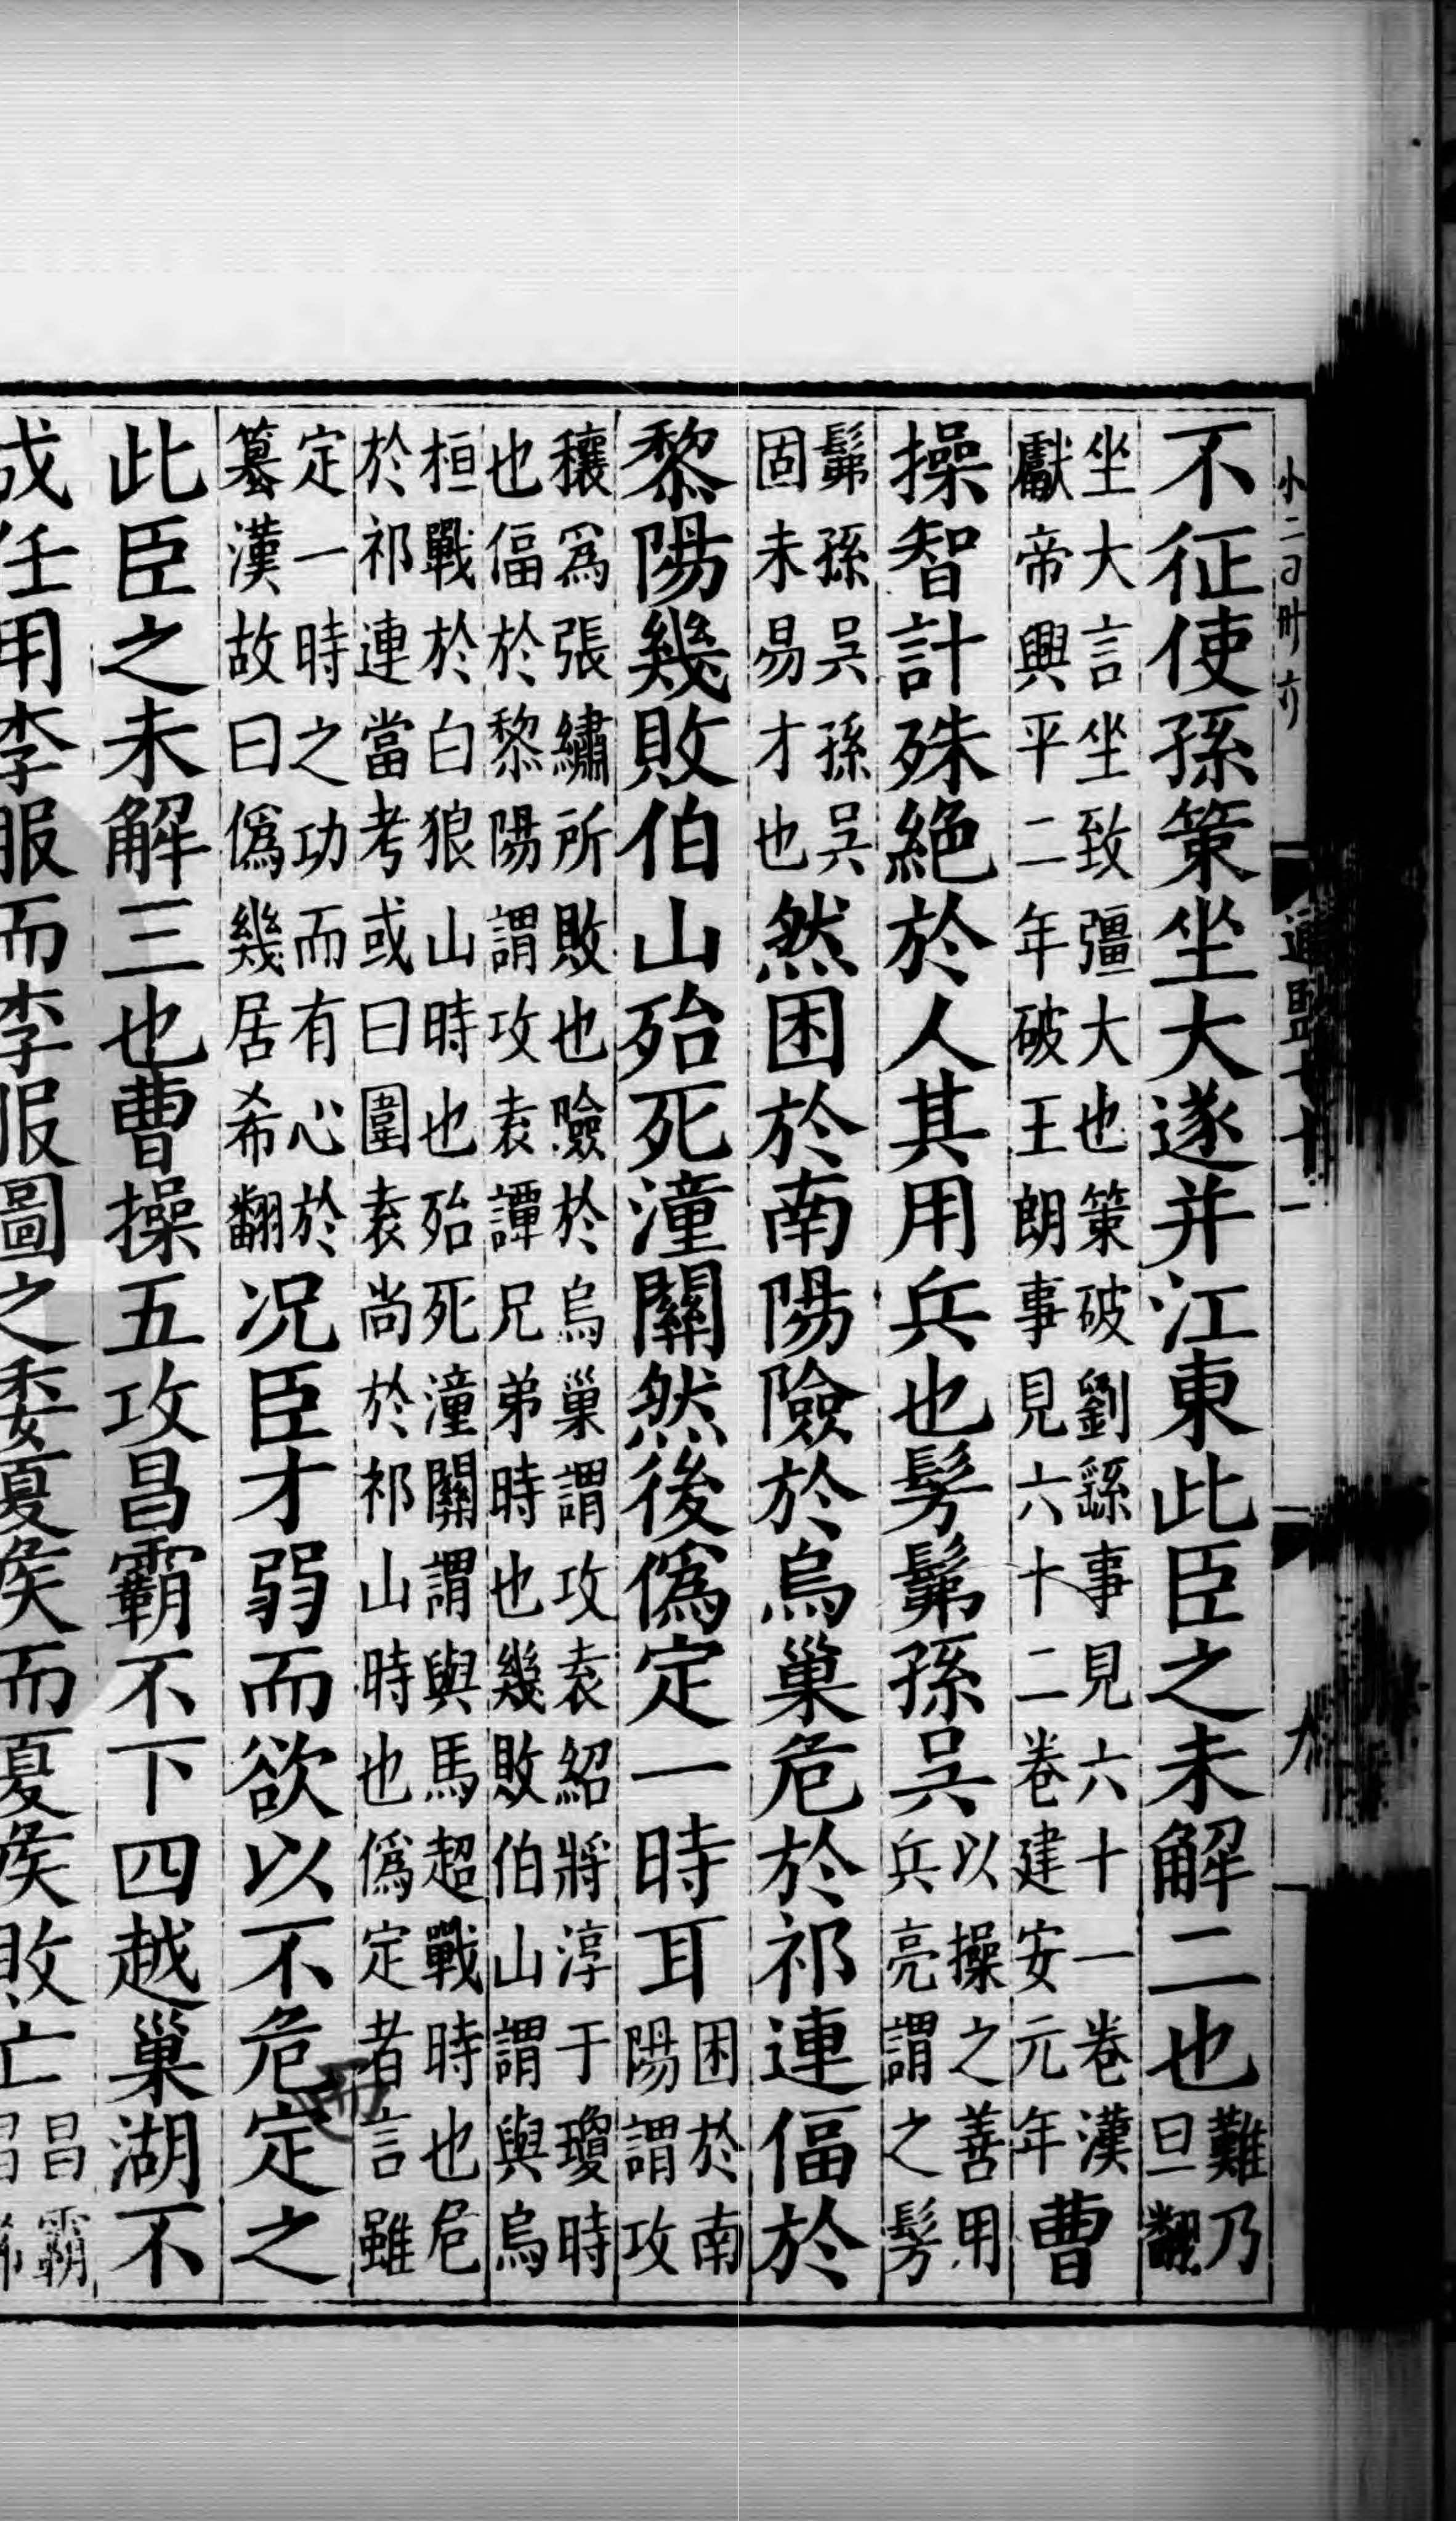 小二百卅六
通鑑七十一
不征使孫策坐大遂并江東此臣之未解二也難乃旦翻
坐大言坐致彊大也策破劉繇事見六十一卷漢獻帝興平二年破王朗事見六十二卷建安元年曹
操智計殊絶於人其用兵也髣髴孫吳以操之善用兵亮謂之髣
髴孫吳孫吳固未易才也然困於南陽險於烏巢危於祁連偪於
黎陽幾敗伯山殆死潼關然後僞定一時耳困於南陽謂攻
穰爲張繡所敗也險於烏巢謂攻袁紹將淳于瓊時也偪於黎陽謂攻袁譚兄弟時也幾敗伯山謂與烏
桓戰於白狼山時也殆死潼關謂與馬超戰時也危於祁連當考或曰圍袁尚於祁山時也僞定者言雖
定一時之功而有心於篡漢故曰僞幾居希翻况臣才弱而欲以不危定之
此臣之未解三也曹操五攻昌霸不下四越巢湖不
成任用李服而李服圖之委夏侯而夏侯敗亡昌霸